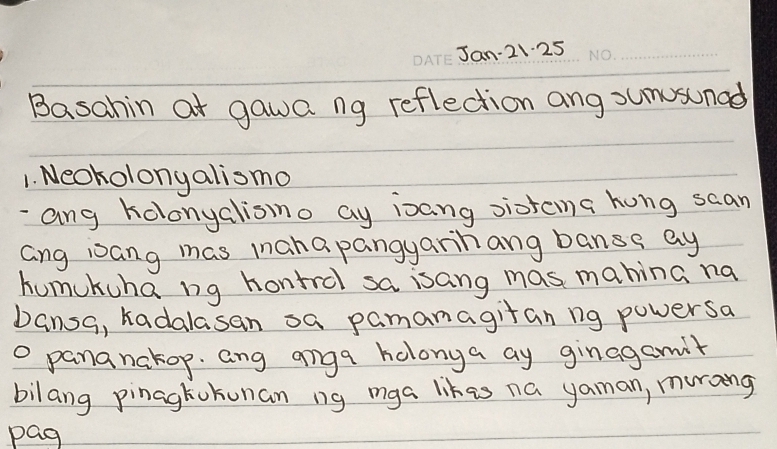 DATE Jan-21-25 NO.
Basahin at gawa ng reflection ang sumusunod
1. Neokolonyalismo
- ang kolonyalismo ay isang sistema kung saan
ang isang mas makapangyarihang bansa ay
kumukuha ng kontrol sa isang mas mahina na
bansa, kadalasan sa pamamagitan ng puwersa
o pananakop. ang mga kolonya ay ginagamit
bilang pinagkukunan ng mga likas na yaman, murang
pag